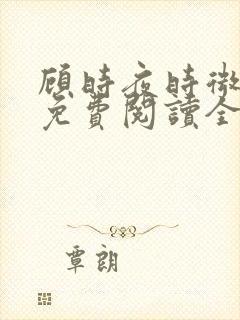 顾時夜時微
免費閱讀全
覃朗